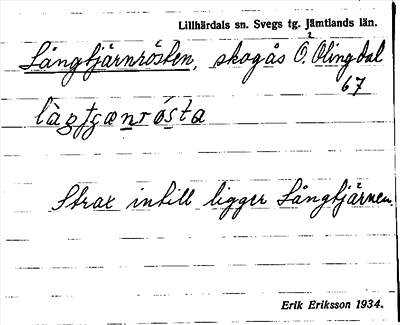 Lillhärdals sn. Svegs tg. Jämtlands län.
Långtjärnrösten, skogås Ö. Olingdal
67
Strax intill ligger Långtjärnen.
Erik Eriksson 1934.